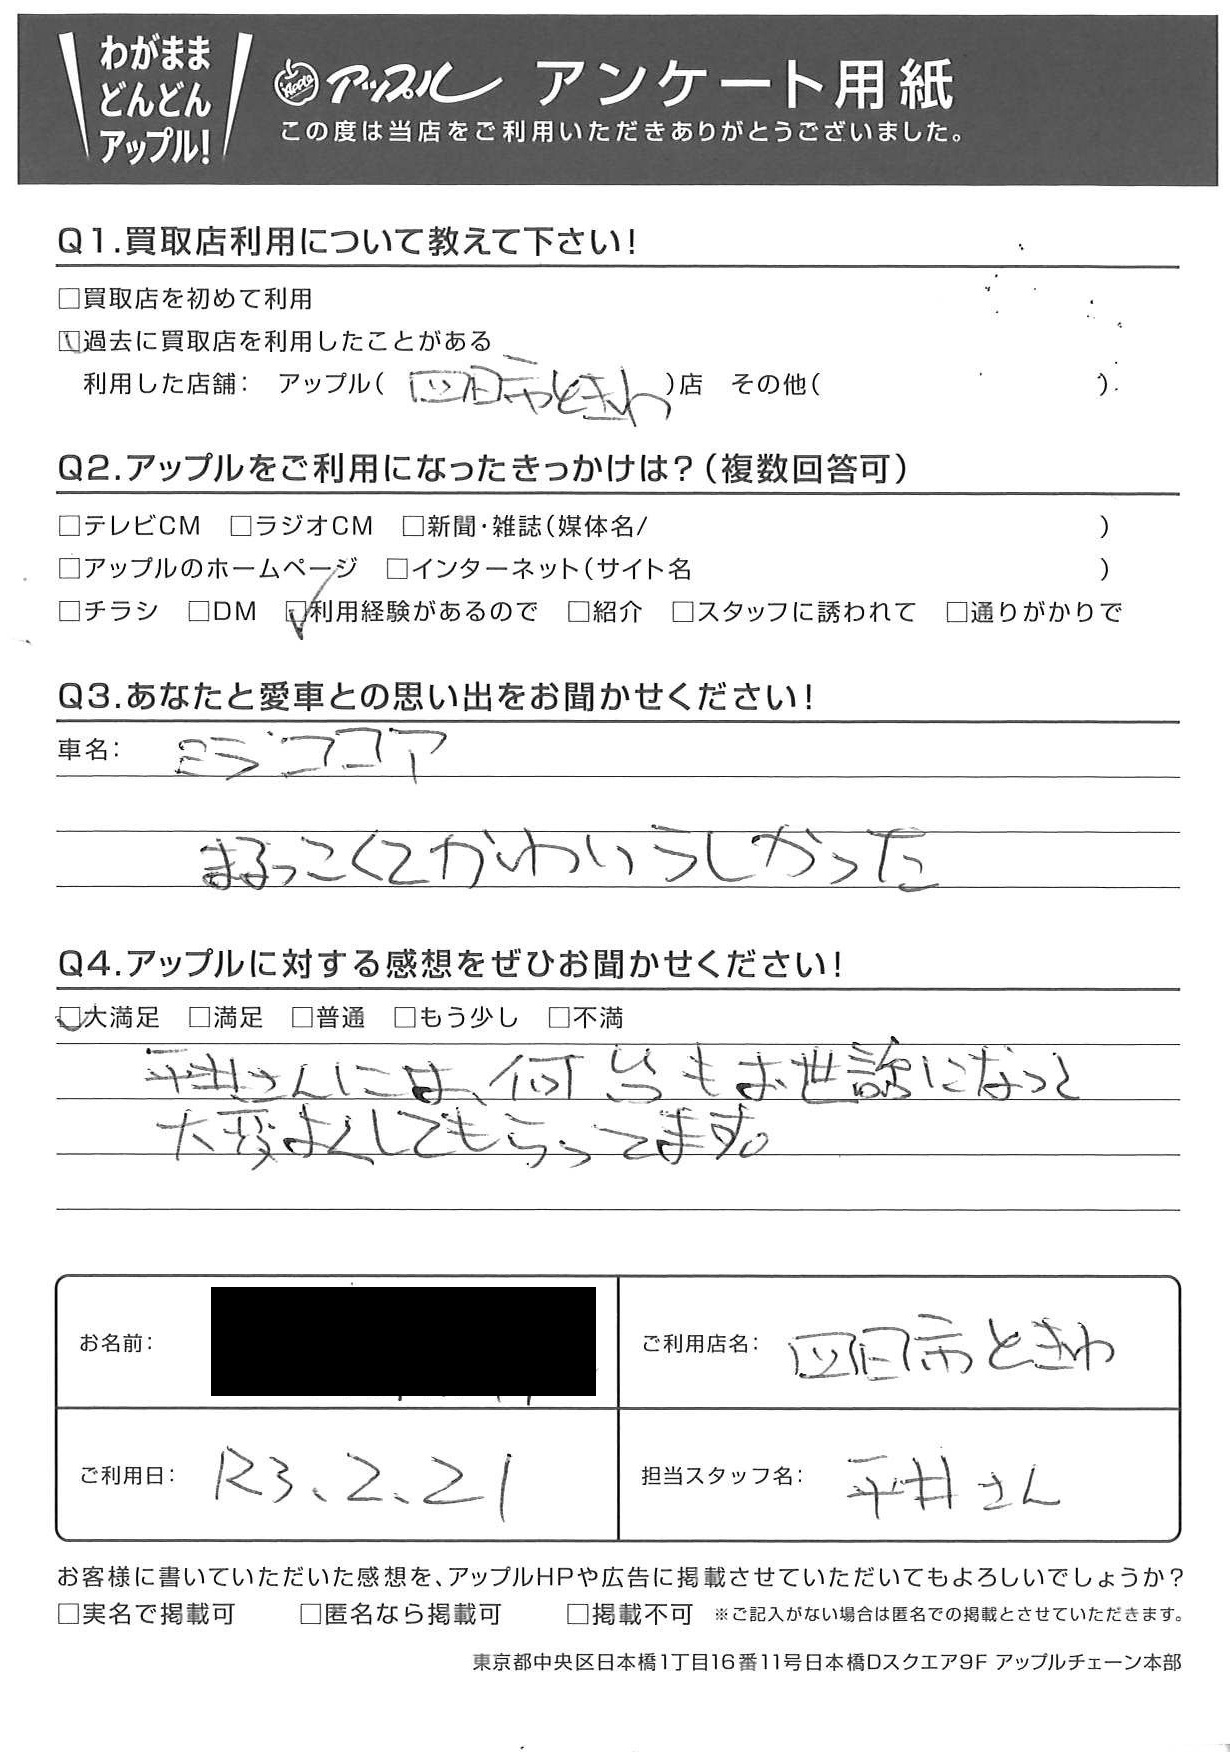 わがまま
どんどん
アップル!
アップル アンケート用紙
この度は当店をご利用いただきありがとうございました。
Q1.買取店利用について教えて下さい!
□買取店を初めて利用
☑過去に買取店を利用したことがある
利用した店舗: アップル(四日市ときわ)店 その他( )
Q2.アップルをご利用になったきっかけは?(複数回答可)
□テレビCM □ラジオCM □新聞・雑誌(媒体名/ )
□アップルのホームページ □インターネット(サイト名 )
□チラシ □DM ☑利用経験があるので □紹介 □スタッフに誘われて □通りがかりで
Q3.あなたと愛車との思い出をお聞かせください!
車名: ミラジココア
まるっこくてかわいうしかった
Q4.アップルに対する感想をぜひお聞かせください!
☑大満足 □満足 □普通 □もう少し □不満
平井さんには、何台もお世話になって
大変よくしてもらってます。
お名前:
ご利用店名: 四日市ときわ
ご利用日: R3、2、21
担当スタッフ名: 平井さん
お客様に書いていただいた感想を、アップルHPや広告に掲載させていただいてもよろしいでしょうか?
□実名で掲載可 □匿名なら掲載可 □掲載不可 ※ご記入がない場合は匿名での掲載とさせていただきます。
東京都中央区日本橋1丁目16番11号日本橋Dスクエア9F アップルチェーン本部